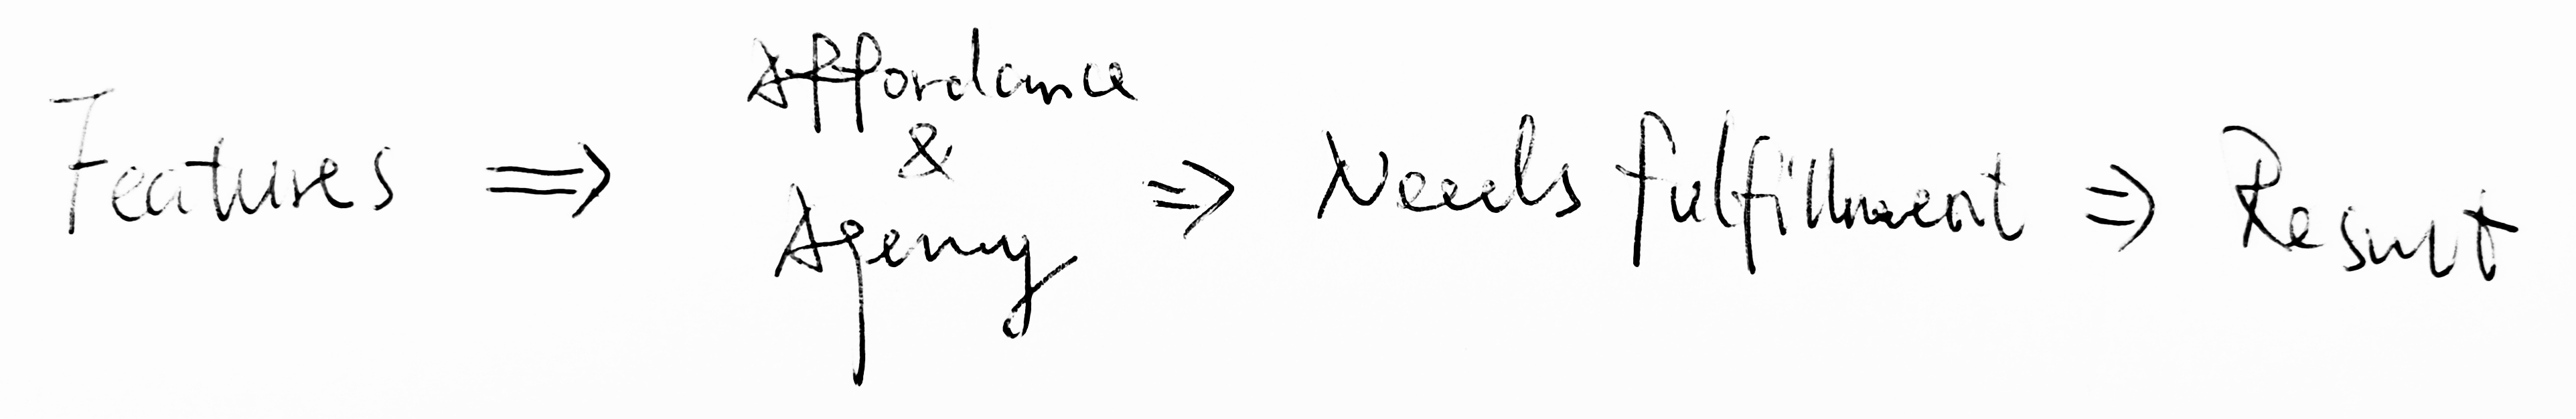 Features ⇒ Affordance & Agency ⇒ Needs fulfillment ⇒ Result